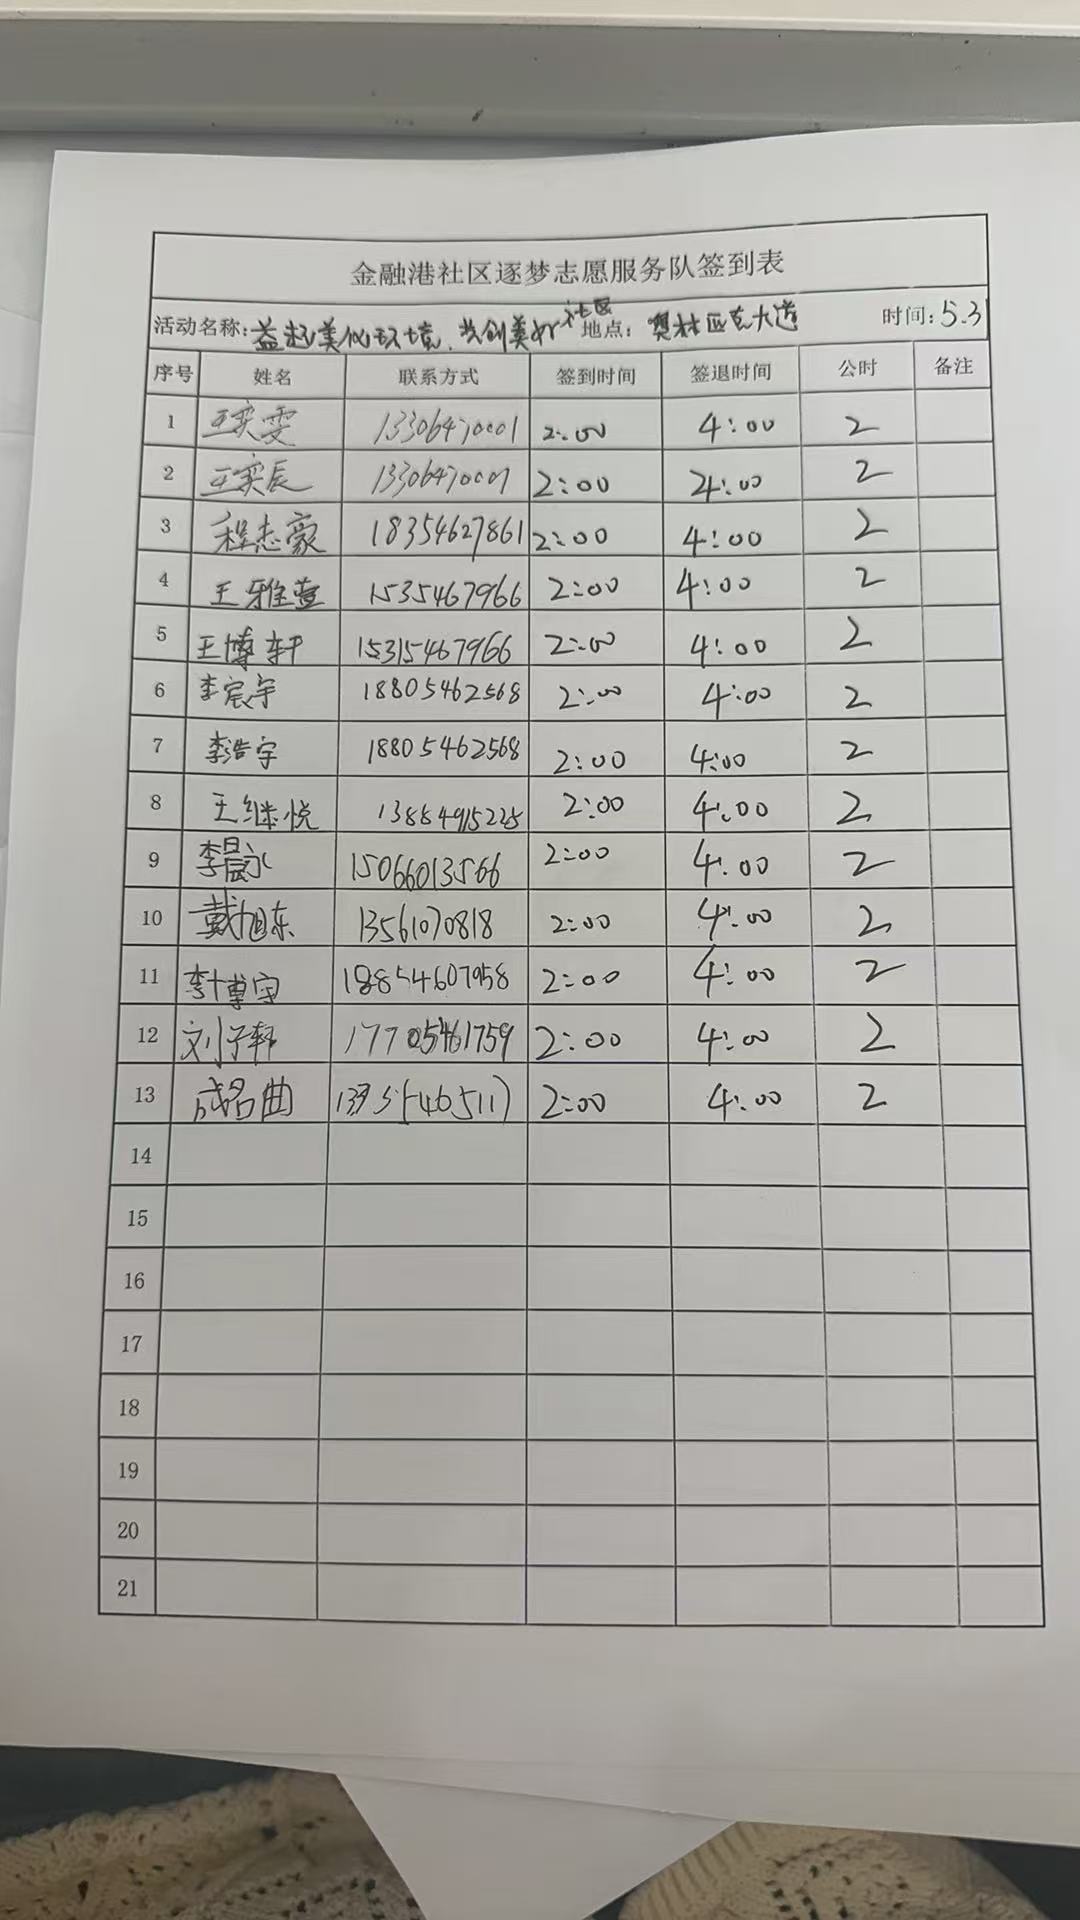 金融港社区逐梦志愿服务队签到表
活动名称:益起美化环境,共创美好社区 地点:奥林匹克大道 时间:5.31
序号 姓名 联系方式 签到时间 签退时间 公时 备注
1 王奕雯 13306470001 2:00 4:00 2
2 王奕辰 13306470001 2:00 4:00 2
3 程志豪 18354627861 2:00 4:00 2
4 王雅萱 1535467966 2:00 4:00 2
5 王博轩 15315467966 2:00 4:00 2
6 李宸宇 18805462568 2:00 4:00 2
7 李浩宇 18805462568 2:00 4:00 2
8 王继悦 13884915225 2:00 4:00 2
9 李晨永 15066013566 2:00 4:00 2
10 戴旭东 13561070818 2:00 4:00 2
11 李博宇 18854607958 2:00 4:00 2
12 刘子轩 17705461759 2:00 4:00 2
13 成名曲 2:00 4:00 2
14
15
16
17
18
19
20
21